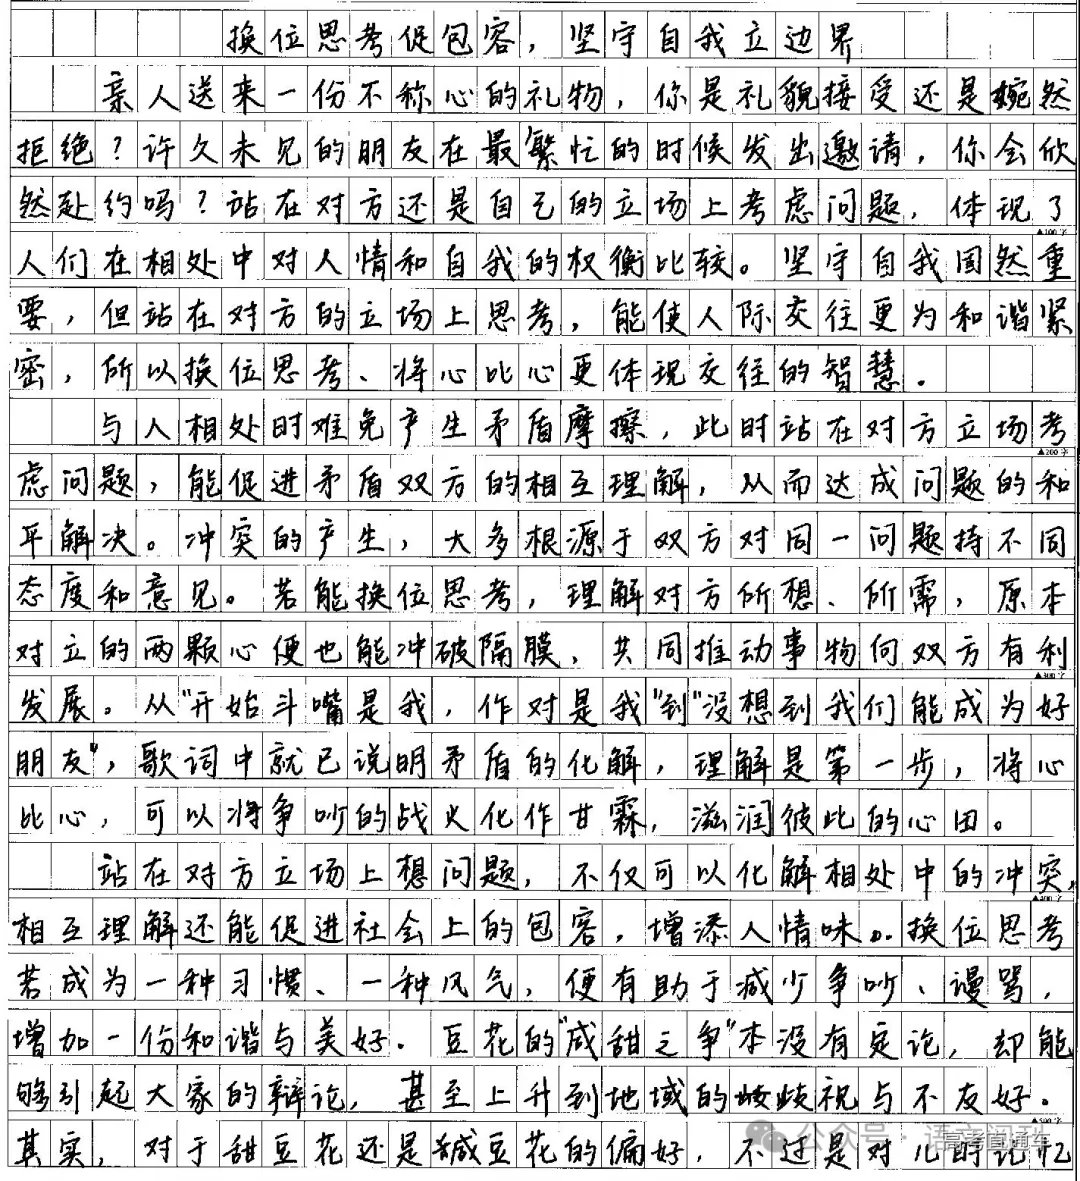 换位思考促包容，坚守自我立边界
亲人送来一份不称心的礼物，你是礼貌接受还是婉然
拒绝？许久未见的朋友在最繁忙的时候发出邀请，你会欣
然赴约吗？站在对方还是自己的立场上考虑问题，体现了
▲100字
人们在相处中对人情和自我的权衡比较。坚守自我固然重
要，但站在对方的立场上思考，能使人际交往更为和谐紧
密，所以换位思考、将心比心更体现交往的智慧。
与人相处时难免产生矛盾摩擦，此时站在对方立场考
▲200字
虑问题，能促进矛盾双方的相互理解，从而达成问题的和
平解决。冲突的产生，大多根源于双方对同一问题持不同
态度和意见。若能换位思考，理解对方所想、所需，原本
对立的两颗心便也能冲破隔膜，共同推动事物向双方有利
▲300字
发展。从“开始斗嘴是我，作对是我”到“没想到我们能成为好
朋友”，歌词中就已说明矛盾的化解，理解是第一步，将心
比心，可以将争吵的战火化作甘霖，滋润彼此的心田。
站在对方立场上想问题，不仅可以化解相处中的冲突，
▲400字
相互理解还能促进社会上的包容，增添人情味。换位思考
若成为一种习惯、一种风气，便有助于减少争吵、谩骂，
增加一份和谐与美好。豆花的“咸甜之争”本没有定论，却能
够引起大家的辩论，甚至上升到地域的歧视与不友好。
▲500字
其实，对于甜豆花还是咸豆花的偏好，不过是对儿时记忆
公众号·语文
高考直通车